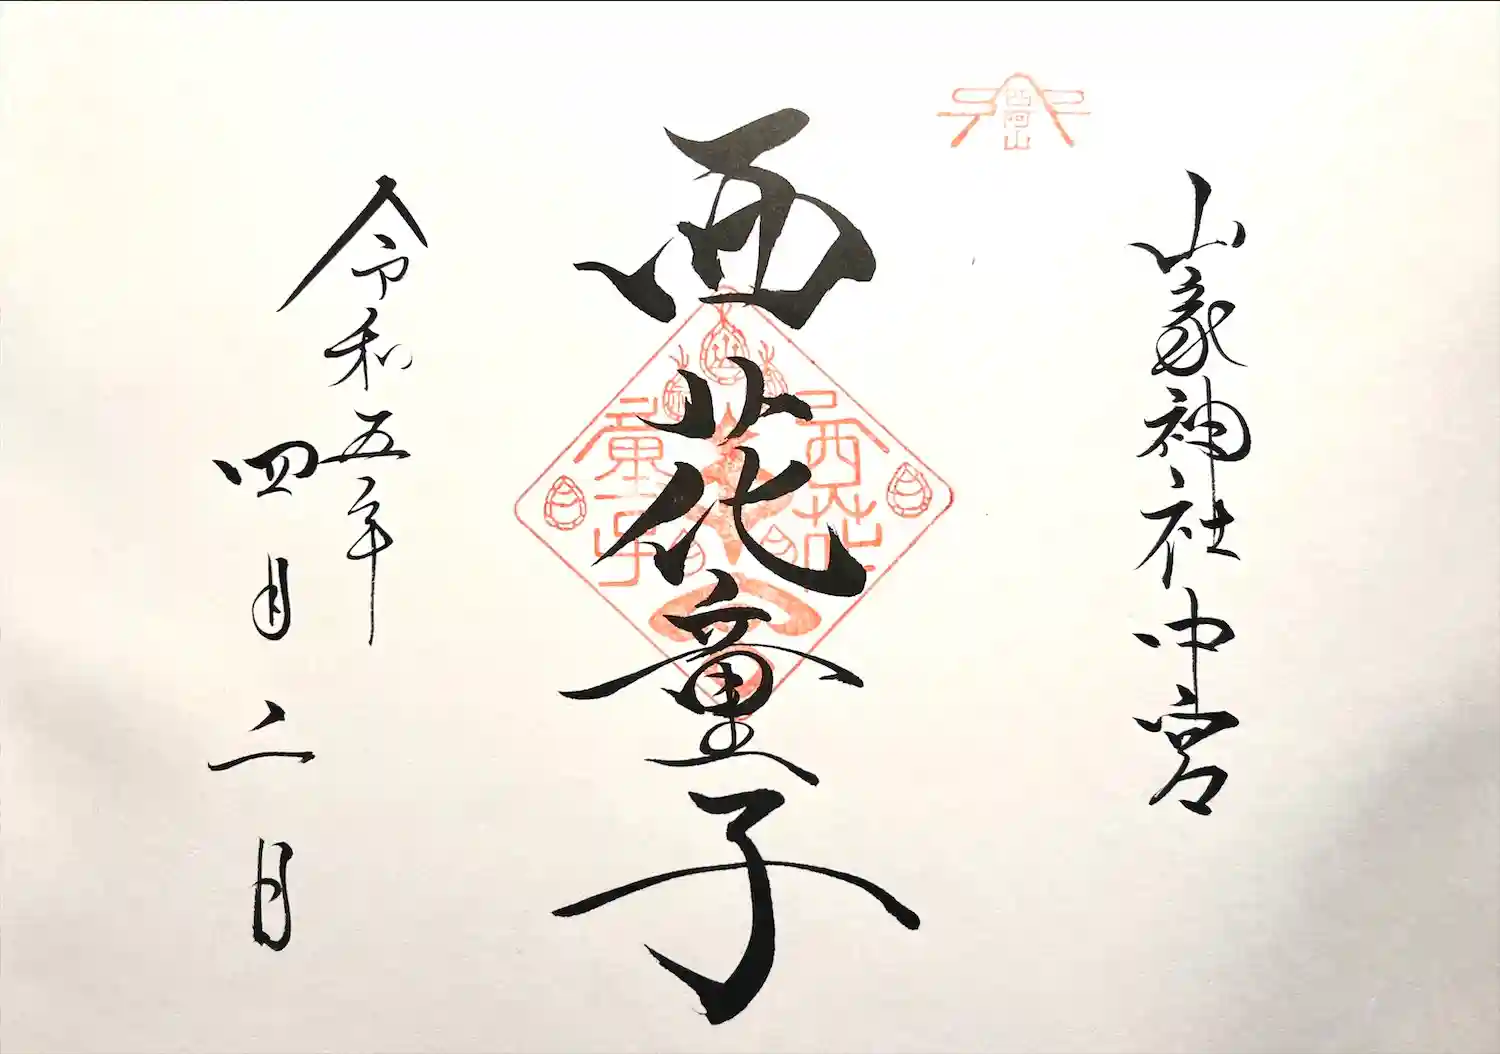 四阿山
山家神社中宮
西花童子
西花
童子
令和五年
四月二日